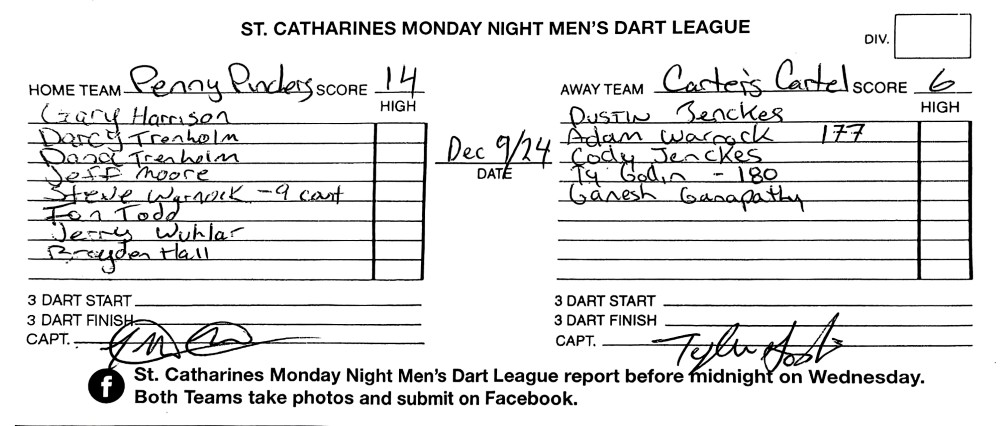 ST. CATHARINES MONDAY NIGHT MEN'S DART LEAGUE
DIV.
HOME TEAM Penny Pinders SCORE 14
HIGH
Gary Harrison
Darcy Trenholm
Dana Trenholm
Jeff Moore
Steve Warnock - 9 count
Ian Todd
Jerry Wuhlar
Brayden Hall
3 DART START
3 DART FINISH
CAPT.
Dec 9/24
DATE
AWAY TEAM Carter's Cartel SCORE 6
HIGH
Dustin Jenckes
Adam Warnock 177
Cody Jenckes
Ty Godin - 180
Ganesh Ganapathy
3 DART START
3 DART FINISH
CAPT. Tyler
f St. Catharines Monday Night Men's Dart League report before midnight on Wednesday.
Both Teams take photos and submit on Facebook.